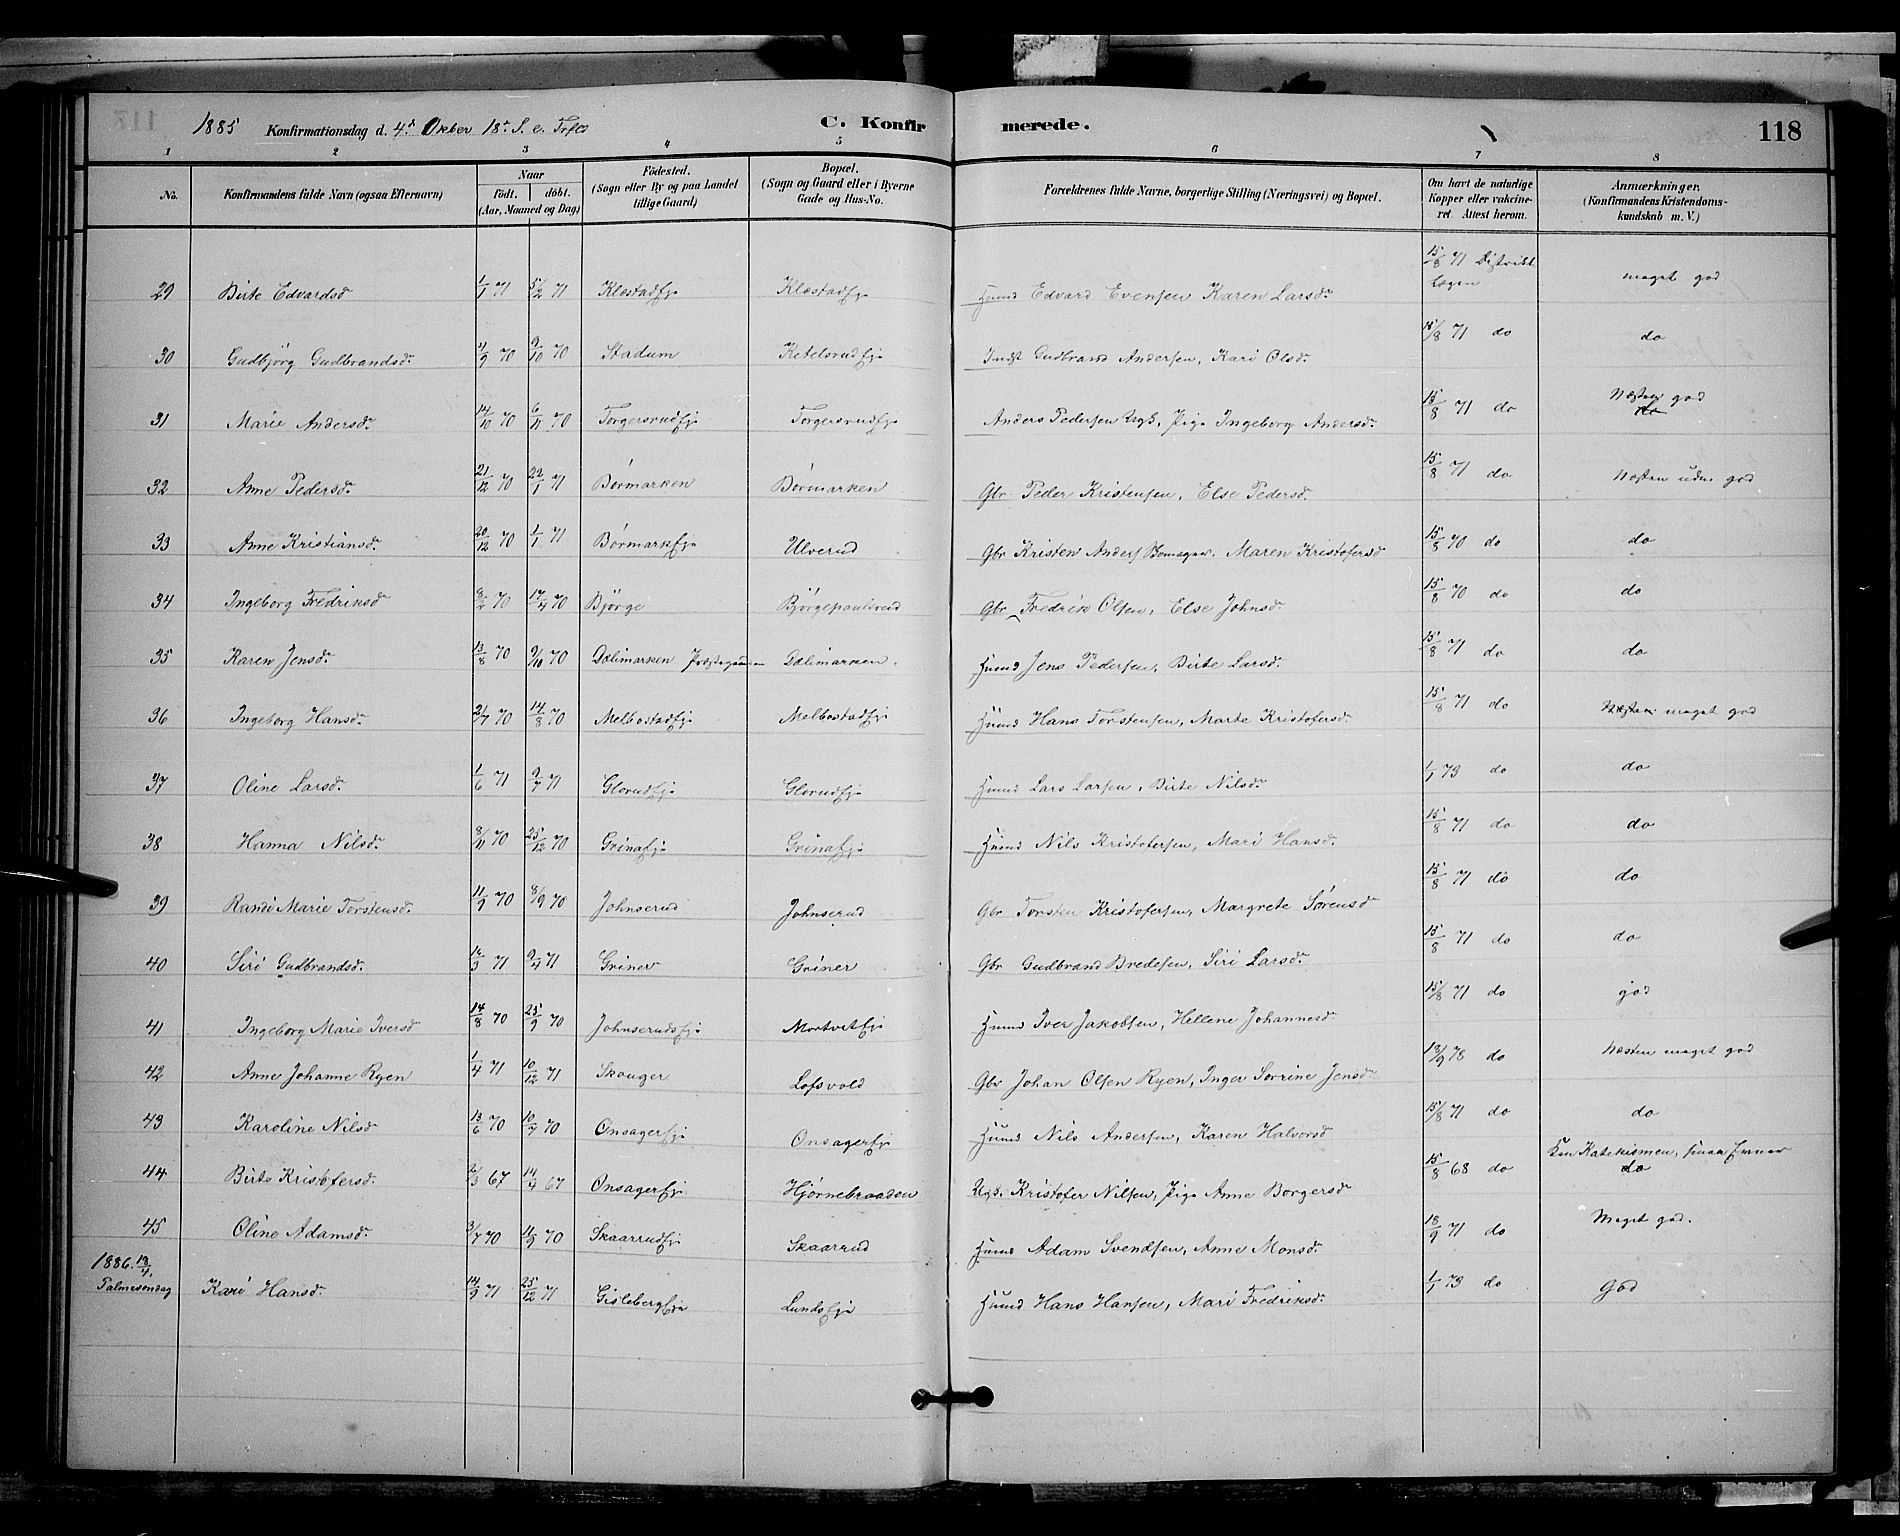 1885 Konfirmationsdag d. 4d Okber 18de S. e. Trfts C. Konfirmerede. 118
1 2 3 4 5 6 7 8
No. Konfirmandens fulde Navn (ogsaa Efternavn) Naar födt. döbt. (Aar, Maaned og Dag) Födested. (Sogn eller By og paa Landet tillige Gaard) Bopæl. (Sogn og Gaard eller i Byerne Gade og Hus-No. Forældrenes fulde Navne, borgerlige Stilling (Næringsvei) og Bopæl. Om havt de naturlige Kopper eller vakcineret. Attest herom. Anmærkninger. (Konfirmandens Kristendomskundskab m. V.)
29 Birte Edvardsd 1/1 71 5/2 71 Klæstadeje Klæstadeje Husmd Edvard Evensen Karen Larsdr 15/8 71 Distriktlægen meget god
30 Gudbjørg Gudbrandsdr 4/9 70 9/10 70 Stadum Ketelsrudeje Indst Gudbrand Andersen, Kari Olsdr 15/8 71 do do
31 Marie Andersdr 14/10 70 6/11 70 Torgersrudeje Torgersrudeje Anders Pedersen Ugk, Pige Ingeborg Andersdr 15/8 71 do Næsten god do
32 Anne Pedersdr 21/12 70 22/1 71 Børmarken Børmarken Gbr Peder Kristensen, Else Pedersdr 15/8 71 do Næsten god
33 Anne Kristiansdr 20/12 70 1/1 71 Børmarkeje Ulverud Gbr Kristen Anders Maren Kristofersd 15/8 70 do do
34 Ingeborg Fredriksd 8/2 70 17/4 70 Bjørge Bjørgepaulsrud Gbr Fredrik Olsen, Else Johnsdr 15/8 70 do do
35 Karen Jensdr 13/8 70 9/10 70 Dælimarken Dælimarken. Husmd Jens Pedersen, Birte Larsdr 15/8 71 do do
36 Ingeborg Hansdr 21/7 70 14/8 70 Melbostadeje Melbostadeje Husmd Hans Torstensen, Marte Kristofersdr 15/8 71 do Næsten meget god
37 Oline Larsdr 1/6 71 9/7 71 Glorudeje Glorudeje Husmd Lars Larsen, Birte Nilsdr 1/1 73 do do
38 Hanna Nilsdr 8/11 70 25/12 70 Grinaeje Grinaeje Husmd Nils Kristofersen, Mari Hansdr 15/8 71 do do
39 Randi Marie Torstensdr 11/7 70 8/9 70 Johnserud Johnserud Gbr Torsten Kristofersen, Margrete Sørensdr 15/8 71 do do
40 Siri Gudbrandsdr 12/3 71 9/4 71 Griner Griner Gbr Gudbrand Bredesen, Siri Larsdr 15/8 71 do do
41 Ingeborg Marie Iversd 14/8 70 25/9 70 Johnserudseje Mortviteje Husmd Iver Jakobsen, Hellene Johannesdr 15/8 71 do god
42 Anne Johanne Ryen 1/4 71 10/12 71 Skouger Lofsvold Gbr Johan Olsen Ryen, Inger Sørrine Jensdr 18/9 78 do Næsten meget god
43 Karoline Nilsdr 13/6 70 10/7 70 Onsagereje Onsagereje Husmd Nils Andersen, Karen Halvorsd 15/8 71 do do
44 Birte Kristofersdr 2/3 67 14/4 67 Onsagereje Hjørnebraaden Ugk. Kristofer Nilsen, Pige Anne Borgersdr 15/8 68 do Kun Katekismen, smaa Evner do
45 Oline Adamsdr 3/7 70 11/9 70 Skaarrudeje Skaarrud Husmd Adam Svendsen, Anne Monsdr 18/9 71 do Meget god.
1886. 18/4. Palmesøndag Kari Hansdr 14/9 71 25/12 71 Gislebergeje Lundseje Husmd Hans Hansen, Mari Fredriksdr 1/1 73 do God